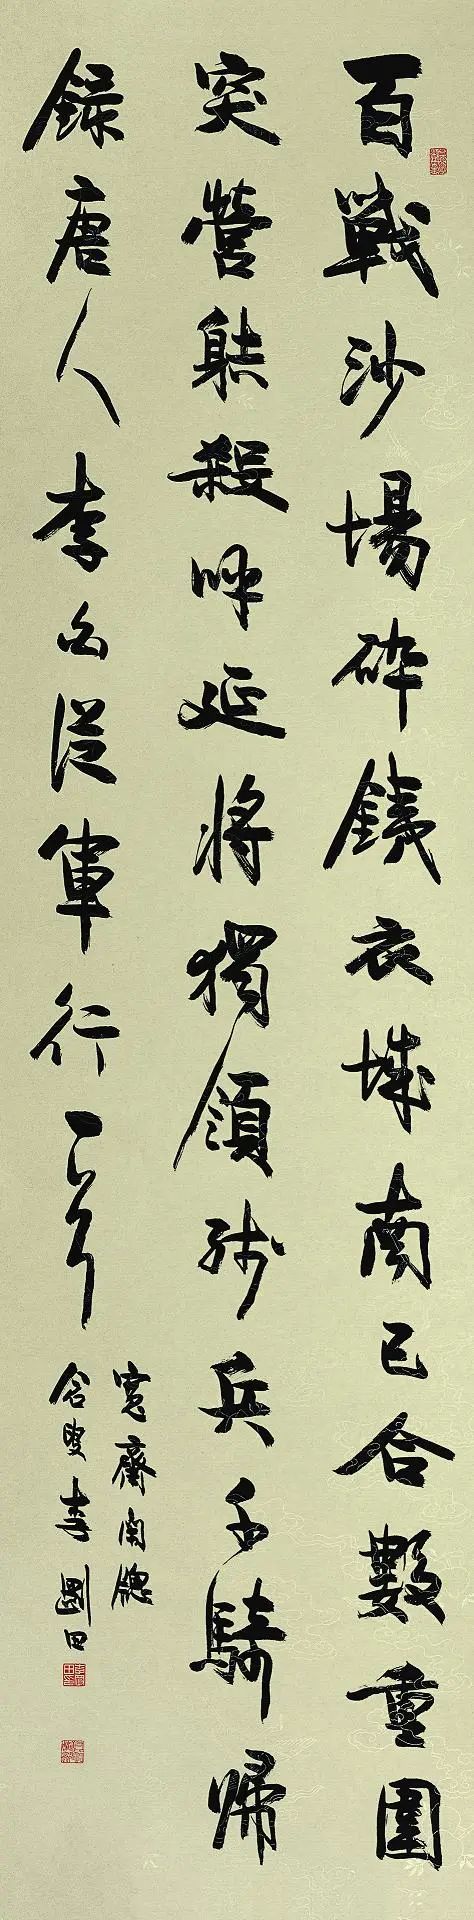 百戰沙場碎鐵衣城南已合數重圍
突營射殺呼延將獨領殘兵千騎歸
錄唐人李白從軍行一首
寬齋南牕
仓叟李剛田